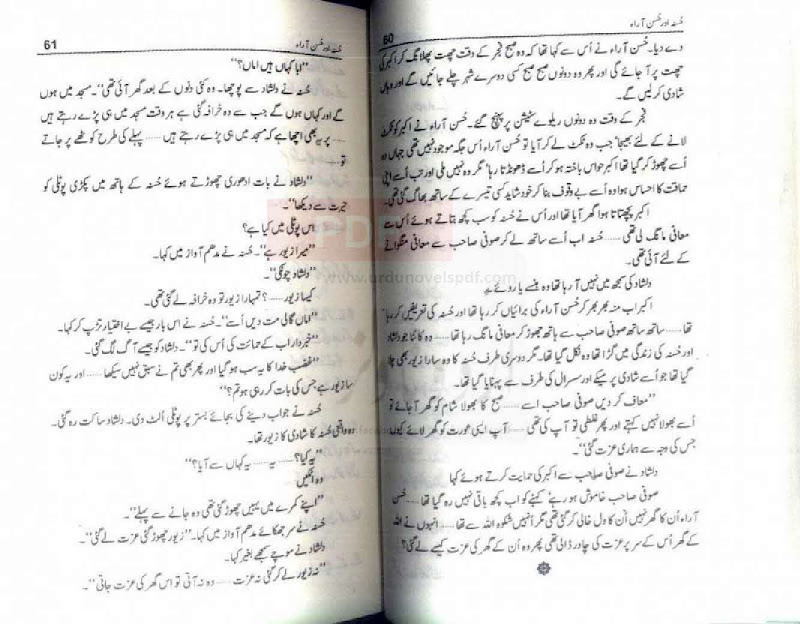 60
حُسنہ اور حُسن آراء
دے دیا۔ حُسن آراء نے اُس سے کہا تھا کہ وہ صبح فجر کے وقت چھت پھلانگ کر اکبر کی
چھت پر آ جائے گی اور پھر وہ دونوں صبح صبح کسی دوسرے شہر چلے جائیں گے اور وہاں
شادی کر لیں گے۔
فجر کے وقت وہ دونوں ریلوے سٹیشن پر پہنچ گئے۔ حُسن آراء نے اکبر کو ٹکٹ
لانے کے لئے بھیجا' جب وہ ٹکٹ لے کر آیا تو حُسن آراء اُس جگہ موجود نہیں تھی جہاں وہ
اُسے چھوڑ کر گیا تھا اکبر حواس باختہ ہو کر اُسے ڈھونڈتا رہا' مگر وہ نہیں ملی اور تب اُسے اپنی
حماقت کا احساس ہوا وہ اُسے بے وقوف بنا کر خود شاید کسی تیسرے کے ساتھ بھاگ گئی تھی۔
اکبر پچھتاتا ہوا گھر آیا تھا اور اُس نے حُسنہ کو سب کچھ بتاتے ہوئے اُس سے
معافی مانگ لی تھی ...... حُسنہ اب اُسے ساتھ لے کر صوفی صاحب سے معافی منگوانے
کے لئے آئی تھی۔
دلشاد کی سمجھ میں نہیں آ رہا تھا وہ ہنسے یا روئے۔
اکبر اب منہ بھر بھر کر حُسن آراء کی برائیاں کر رہا تھا اور حُسنہ کی تعریفیں کر رہا
تھا ...... ساتھ ساتھ صوفی صاحب سے ہاتھ جوڑ کر معافی مانگ رہا تھا ...... وہ کانٹا جو دلشاد
اور حُسنہ کی زندگی میں گڑا تھا وہ نکل گیا تھا۔ مگر دوسری طرف حُسنہ کا وہ سارا زیور بھی چلا
گیا تھا جو اُسے شادی پر میکے اور سسرال کی طرف سے پہنایا گیا تھا۔
''معاف کر دیں صوفی صاحب اسے ...... صبح کا بھولا شام کو گھر آ جائے تو
اُسے بھولا نہیں کہتے اور پھر غلطی تو آپ کی تھی ...... آپ ایسی عورت کو گھر لائے کیوں
جس کی وجہ سے ہماری عزت گئی''۔
دلشاد نے صوفی صاحب سے اکبر کی حمایت کرتے ہوئے کہا
صوفی صاحب خاموش ہو رہے' کہنے کو اب کچھ باقی نہیں رہ گیا تھا ...... حُسن
آراء اُن کا گھر نہیں اُن کا دل خالی کر گئی تھی مگر انہیں شکوہ اللہ سے تھا ...... انہوں نے اللہ
کے گھر اُس کے سر پر عزت کی چادر ڈالی تھی پھر وہ اُن کے گھر کی عزت کیسے لے گئی؟
61
حُسنہ اور حُسن آراء
''ابا کہاں ہیں اماں؟''
حُسنہ نے دلشاد سے پوچھا۔ وہ کئی دنوں کے بعد گھر آئی تھی''۔ مسجد میں ہوں
گے اور کہاں ہوں گے جب سے وہ خرافہ گئی ہے ہر وقت مسجد میں ہی پڑے رہتے ہیں
...... پر یہ بھی اچھا ہے کہ مسجد میں ہی پڑے رہتے ہیں ...... پہلے کی طرح کوٹھے پر جاتے
تو ......
''دلشاد نے بات ادھوری چھوڑتے ہوئے حُسنہ کے ہاتھ میں پکڑی پوٹلی کو
حیرت سے دیکھا''۔
اس پوٹلی میں کیا ہے؟
''میرا زیور ہے''۔ حُسنہ نے مدھم آواز میں کہا۔
''دلشاد چونکی''۔
کیسا زیور ...... ؟ تمہارا زیور تو وہ خرافہ لے گئی تھی۔
''اماں گالی مت دیں اُسے''۔ حُسنہ نے اس بار جیسے بے اختیار تڑپ کر کہا۔
''خبردار اب کے حمایت کی اُس کی تو''۔ دلشاد کو جیسے آگ لگ گئی۔
''غضب خدا کا یہ سب ہو گیا اور پھر بھی تم نے سبق نہیں سیکھا ...... اور یہ کون
سا زیور ہے جس کی بات کر رہی ہو تم؟''
حُسنہ نے جواب دینے کی بجائے بستر پر پوٹلی اُلٹ دی۔ دلشاد ساکت رہ گئی۔
وہ واقعی حُسنہ کا شادی کا زیور تھا۔
''یہ کیا؟ ...... یہ ...... یہ کہاں سے آیا؟''
وہ اٹکیں
''اپنے کمرے میں یہیں چھوڑ گئی تھی وہ جانے سے پہلے''۔
حُسنہ نے سر جھکائے مدھم آواز میں کہا۔ ''زیور چھوڑ گئی عزت لے گئی''۔
دلشاد نے سوچے سمجھے بغیر کہا۔
''نہ زیور لے کر گئی نہ عزت ...... وہ نہ آتی تو اس گھر کی عزت جاتی''۔
PDF
www.urdunovelspdf.com